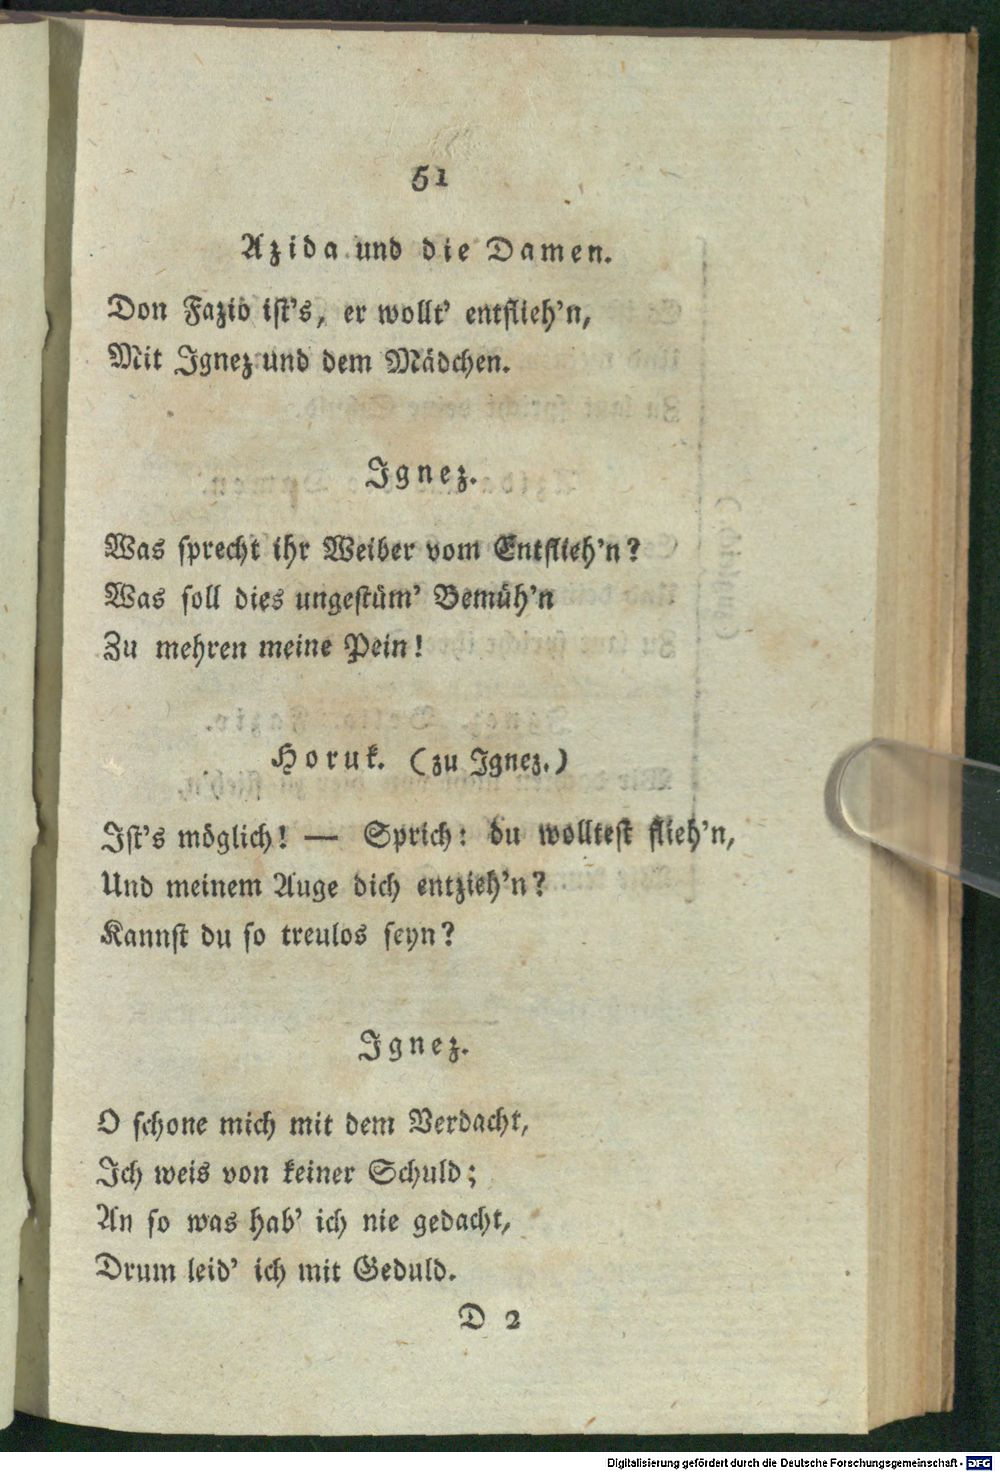 51
Azida und die Damen.
Don Fazio ist's, er wollt' entflieh'n,
Mit Ignez und dem Mädchen.
Ignez.
Was sprecht ihr Weiber vom Entflieh'n?
Was soll dies ungestüm' Bemüh'n
Zu mehren meine Pein!
Horuk. (zu Ignez.)
Ist's möglich! — Sprich: du wolltest flieh'n,
Und meinem Auge dich entzieh'n?
Kannst du so treulos seyn?
Ignez.
O schone mich mit dem Verdacht,
Ich weis von keiner Schuld;
An so was hab' ich nie gedacht,
Drum leid' ich mit Geduld.
D 2
Digitalisierung gefördert durch die Deutsche Forschungsgemeinschaft - DFG